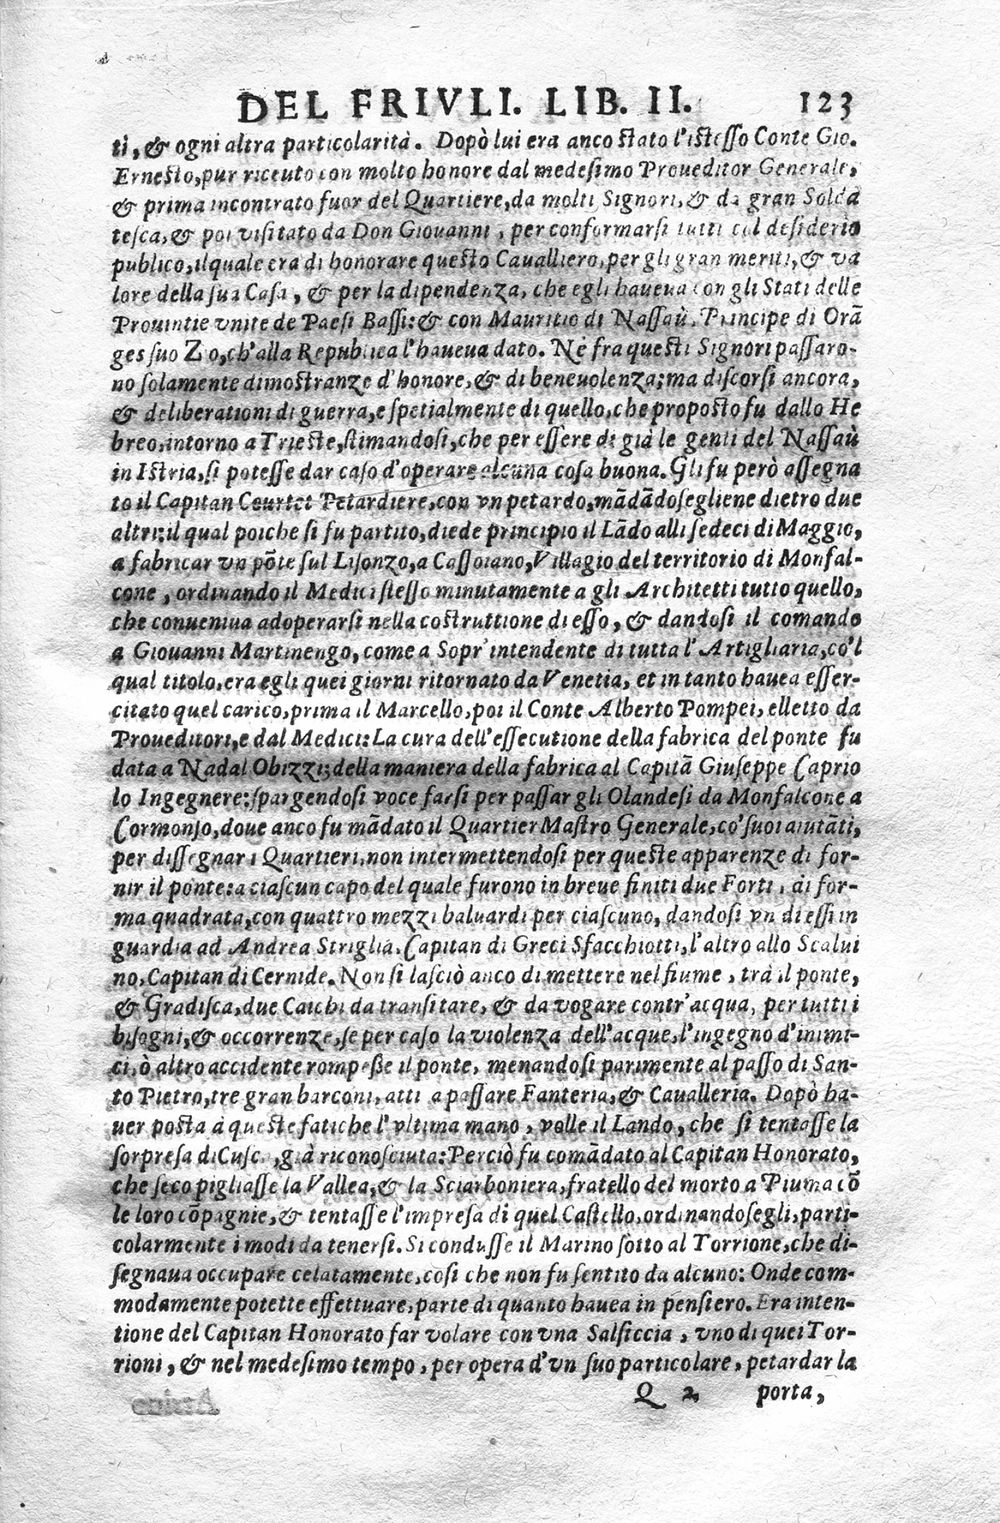 DEL FRIVLI. LIB. II. 123
ti, & ogni altra particolarità. Dopò lui era anco stato l'istesso Conte Gio.
Ernesto, pur riceuto con molto honore dal medesimo Proueditor Generale,
& prima incontrato fuor del Quartiere, da molti Signori, & da gran Solda
tesca, & poi visitato da Don Giouanni, per conformarsi tutti col desiderio
publico, il quale era di honorare questo Caualliero, per gli gran meriti, & va
lore della sua Casa, & per la dipendenza, che egli haueua con gli Stati delle
Prouintie vnite de Paesi Bassi: & con Mauritio di Nassaù, Principe di Orã
ges suo Zio, ch'alla Republica l'haueua dato. Nè fra questi Signori passaro-
no solamente dimostranze d'honore, & di beneuolenza; ma discorsi ancora,
& deliberationi di guerra, e spetialmente di quello, che proposto fu dallo He
breo, intorno a Trieste, stimandosi, che per essere di già le genti del Nassaù
in Istria, si potesse dar caso d'operare alcuna cosa buona. Gli fu però assegna
to il Capitan Courtet Petardiere, con vn petardo, mãdãdosegliene dietro due
altri: il qual poiche si fu partito, diede principio il Lãdo alli sedeci di Maggio,
a fabricar vn põte sul Lisonzo, a Cassoiano, Villagio del territorio di Monfal-
cone, ordinando il Medici stesso minutamente a gli Architetti tutto quello,
che conueniua adoperarsi nella costruttione di esso, & dandosi il comando
a Giouanni Martinengo, come a Sopr'intendente di tutta l'Artigliaria, co'l
qual titolo, era egli quei giorni ritornato da Venetia, et in tanto hauea esser-
citato quel carico, prima il Marcello, poi il Conte Alberto Pompei, elletto da
Proueditori, e dal Medici: La cura dell'essecutione della fabrica del ponte fu
data a Nadal Obizzi; della maniera della fabrica al Capitã Giuseppe Caprio
lo Ingegnere: spargendosi voce farsi per passar gli Olandesi da Monfalcone a
Cormonso, doue anco fu mãdato il Quartier Mastro Generale, co'suoi aiutãti,
per dissegnar i Quartieri, non intermettendosi per queste apparenze di for-
nir il ponte: a ciascun capo del quale furono in breue finiti due Forti, di for-
ma quadrata, con quattro mezzi baluardi per ciascuno, dandosi vn di essi in
guardia ad Andrea Striglia, Capitan di Greci Sfacchiotti, l'altro allo Scalui
no, Capitan di Cernide. Non si lasciò anco di mettere nel fiume, trà il ponte,
& Gradisca, due Caichi da transitare, & da vogare contr'acqua, per tutti i
bisogni, & occorrenze, se per caso la violenza dell'acque, l'ingegno d'inimi-
ci, ò altro accidente rompesse il ponte, menandosi parimente al passo di San-
to Pietro, tre gran barconi, atti a passare Fanteria, & Caualleria. Dopò ha-
uer posta à queste fatiche l'vltima mano, volle il Lando, che si tentasse la
sorpresa di, già riconosciuta: Perciò fu comãdato al Capitan Honorato,
che seco pigliasse la Vallea, & la Sciarboniera, fratello del morto a Piuma cõ
le loro cõpagnie, & tentasse l'impresa di quel Castello, ordinandosegli, parti-
colarmente i modi da tenersi. Si condusse il Marino sotto al Torrione, che di-
segnaua occupare celatamente, cosi che non fu sentito da alcuno: Onde com-
modamente potette effettuare, parte di quanto hauea in pensiero. Era inten-
tione del Capitan Honorato far volare con vna Salsiccia, vno di quei Tor-
rioni, & nel medesimo tempo, per opera d'vn suo particolare, petardar la
Q 2 porta,